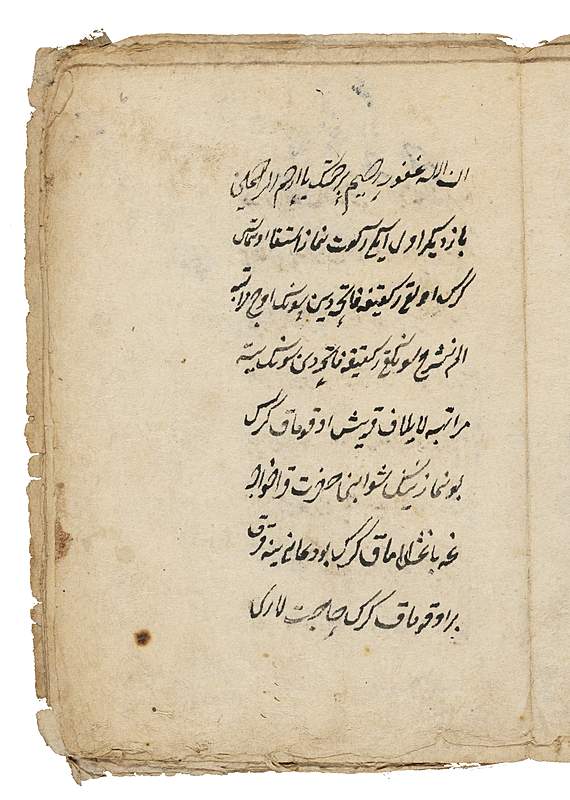 ان الله غفور رحیم برحمتک یا ارحم الراحمین
باز دیکر اول ایکی رکوت نماز استقا اوتماق
کرک اولقی رکعتیغه فاتحه دین سونک اوچ مراتبه
الم نشرح سونکقی رکعتیغه فاتحه دین سونک یته
مراتبه لایلاف قریش اوقوماق کرک
بو نماز نینک ثوابنی حضرت قرا خواجه
غه باغشلاماق کرک بو دعانی ینه قرق
بر اوقوماق کرک حاجت لاری